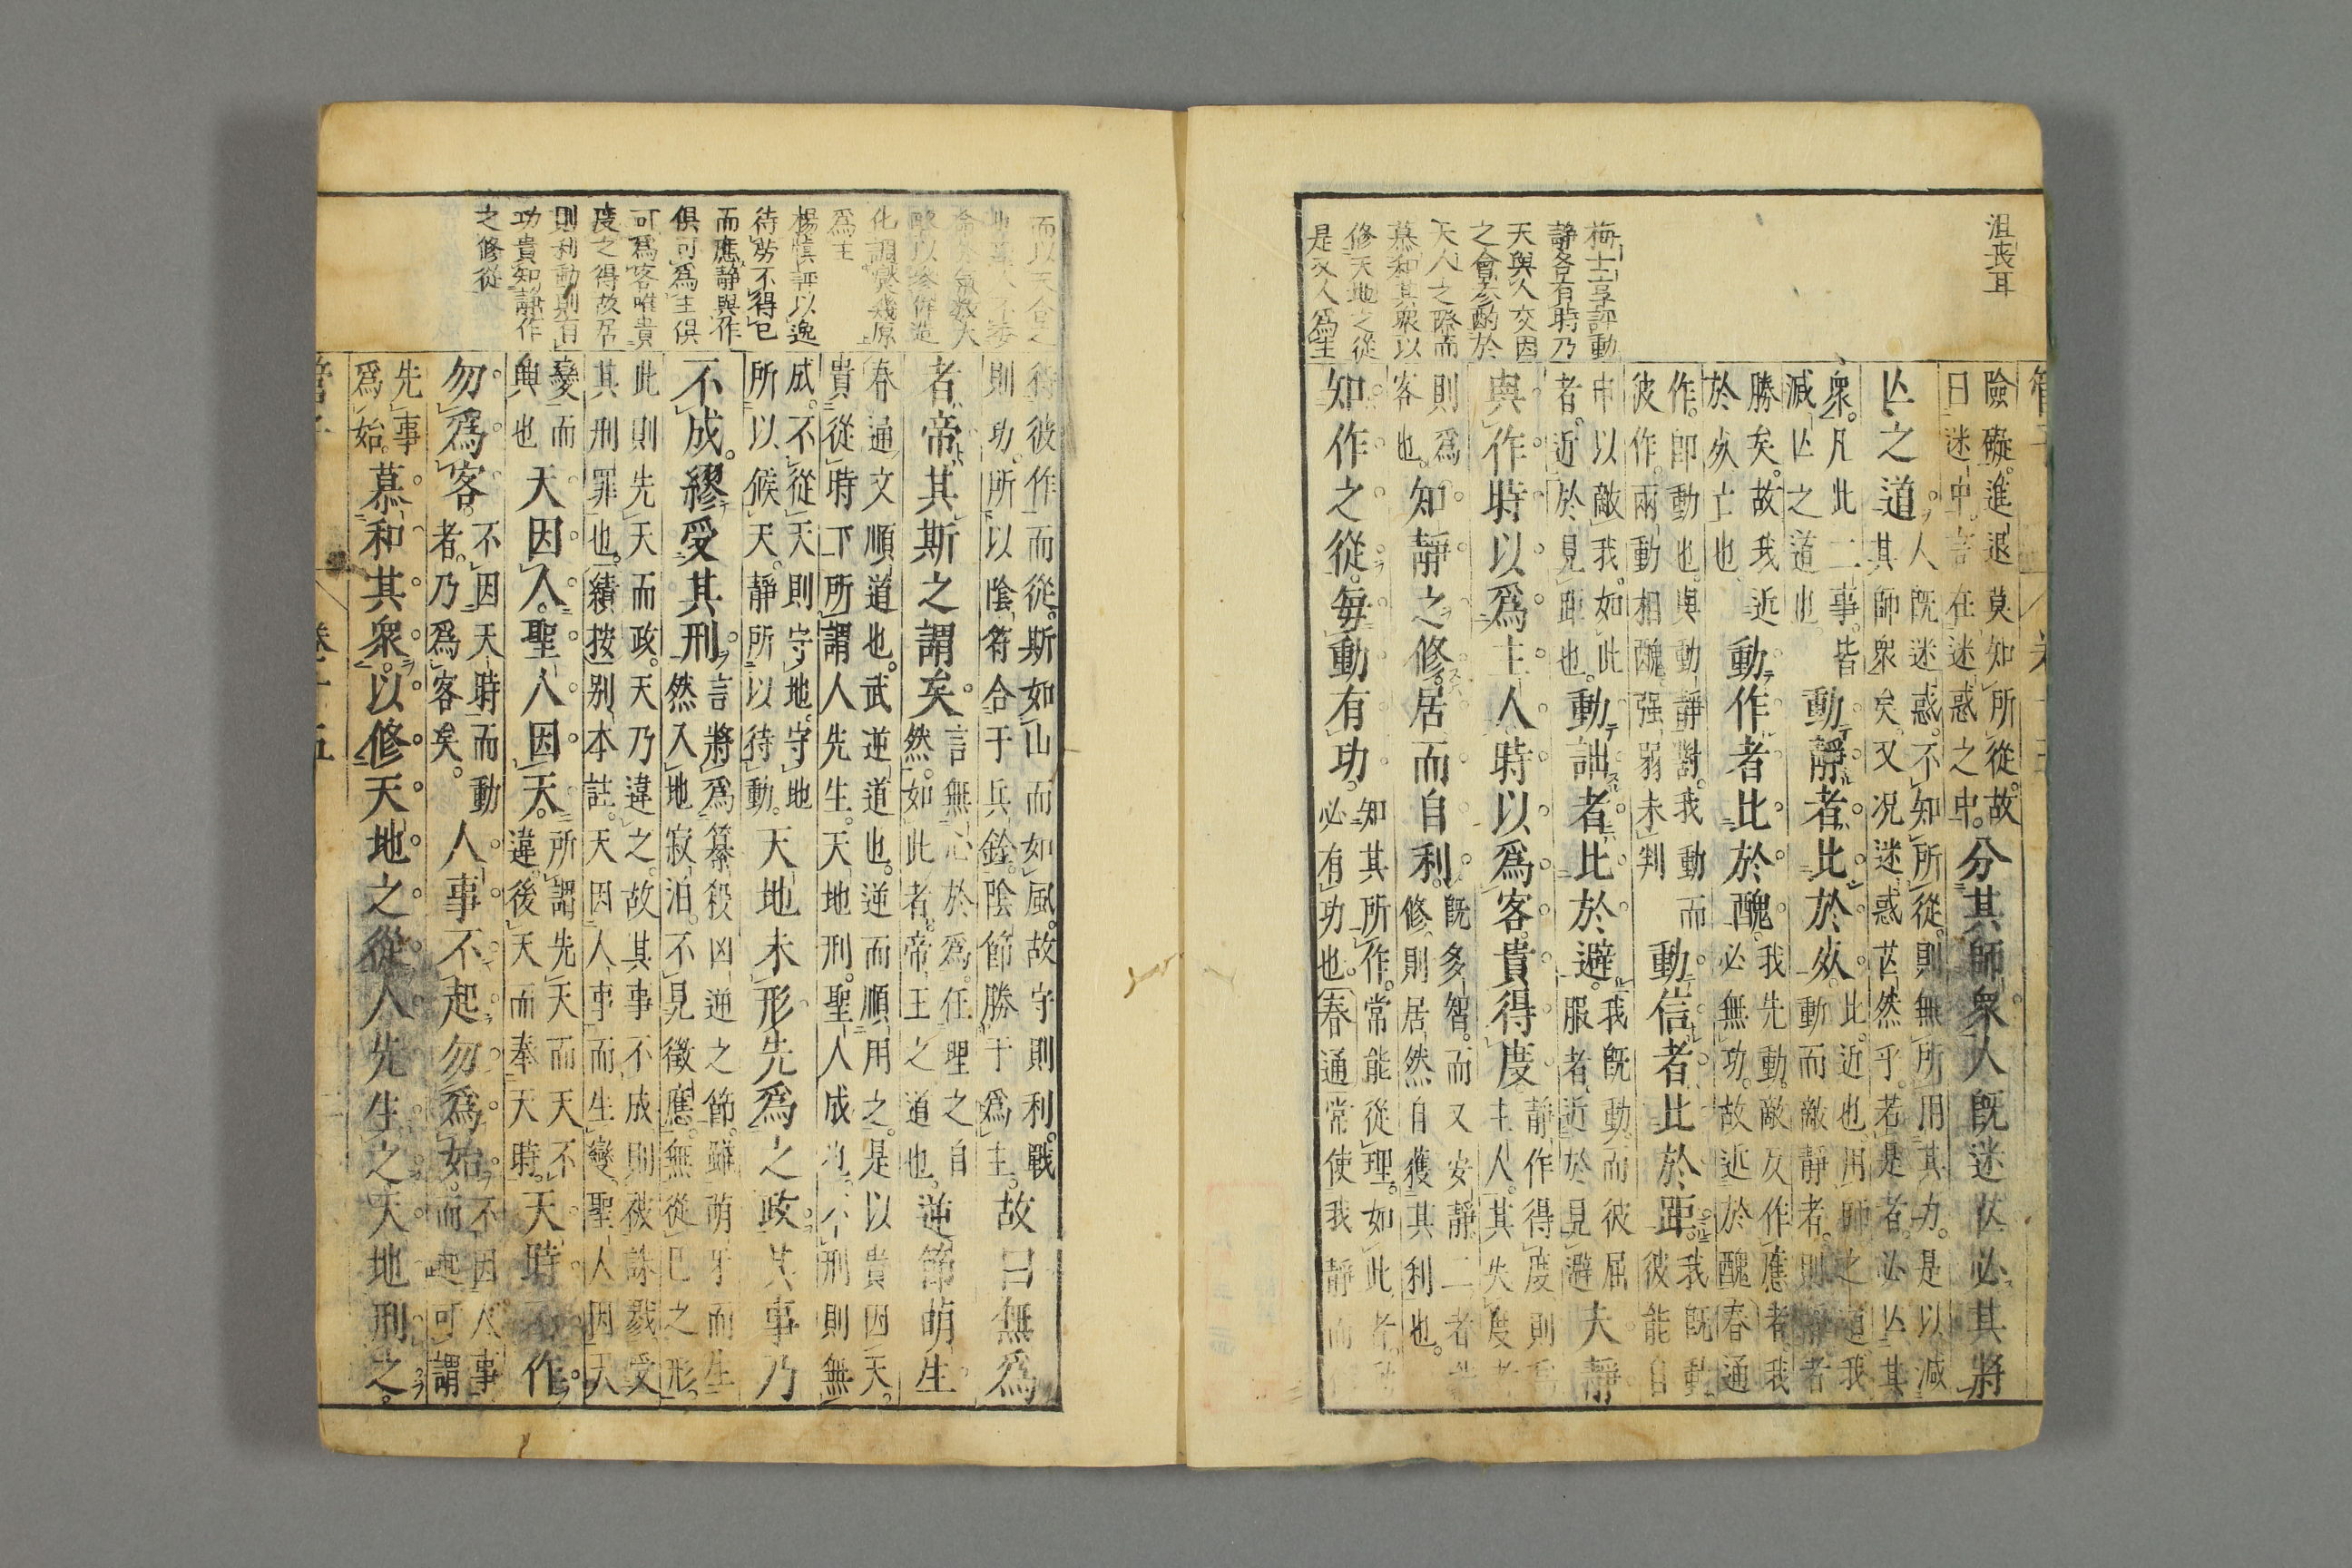 沮喪耳
險礙進退莫知所從故分其師衆人既迷芒必其將
曰迷中言在迷惑之中
亾之道人既迷惑不知所從則無所用其力是以減
其師衆矣又况迷惑芒然乎若是者必亾其
衆凡此二事皆動靜者比於死此近也用師之道我
減亾之道也動而敵靜者則靜者
勝矣故我近動作者比於醜我先動敵乃作應者我
於死亡也必無功故近於醜春通
作即動也與動靜對我動而動信者比於距我既動
彼作兩動相醜强弱未判彼能自
中以敵我如此動詘者比於避我既動而彼屈夫靜
者近於見距也服者近於見避
與作時以爲主人時以爲客貴得度靜作得度則爲
主人其失度者
則爲知靜之修居而自利既多智而又安靜二者
客也修則居然自獲其利也
知作之從每動有功知其所作常能從理如此者
必有功也春通常使我靜而
梅士享評動
靜各有時乃
天與人交因
之會參酌於
天人之際而
慕和其衆以
修天地之從
是又人爲主
待彼作而從斯如山而如風故守則利戰故曰無爲
則功所以陰符合于兵鈐陰節勝于爲主
者帝其斯之謂矣言無心於爲任理之自逆節萌生
然如此者帝王之道也
春通文順道也武逆道也逆而順用之是以貴因天
貴從時下所謂人先生天地刑聖人成之不刑則無
成不從天則守地守地天地未形先爲之政其事乃
所以候天靜所以待動
不成繆受其刑言將爲纂殺凶逆之節雖萌牙而生
然入地寂泊不見徵應無從已之形
此則先天而政天乃違之故其事不成則被誅戮受
其刑罪也績按别本註天因人事而生變聖人因天
變而天因人聖人因天所謂先天而天不天時不作
與也違後天而奉天時
勿爲客不因天時而動人事不起勿爲始不因人事
者乃爲客矣而起可謂
先事慕和其衆以修天地之從人先生之天地刑之
爲始
而以天合之
化調爕幾原
爲主
楊愼評以逸
待勞不得已
而應靜與作
俱可爲主俱
可爲客唯貴
度之得故居
則利動則有
功貴知靜作
之修從